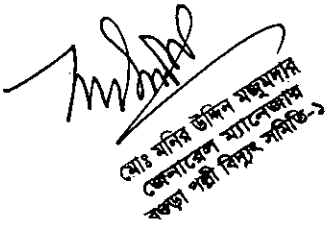 মোঃ মনির উদ্দিন মজুমদার
জেনারেল ম্যানেজার
বগুড়া পল্লী বিদ্যুৎ সমিতি-১